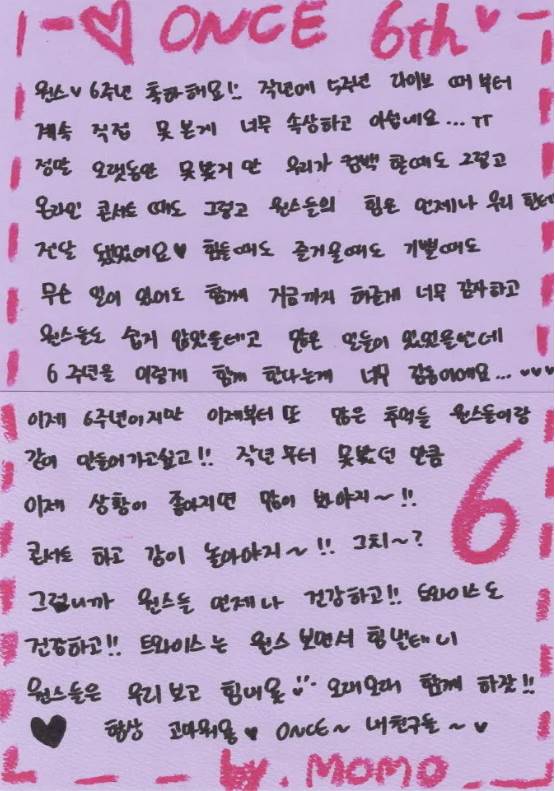 ♡ ONCE 6th ♥
원스♥ 6주년 축하해요!! 작년에 5주년 라이브 때부터
계속 직접 못 본게 너무 속상하고 아쉽네요... ㅠ
정말 오랫동안 못봤지만 우리가 컴백 할때도 그렇고
온라인 콘서트 때도 그렇고 원스들의 힘은 언제나 우리 한테
전달 됐었어요♥ 힘들때도 즐거울때도 기쁠때도
무슨 일이 있어도 함께 지금까지 해온게 너무 감사하고
원스들도 쉽지 않았을테고 많은 일들이 있었을텐데
6주년을 이렇게 함께 한다는게 너무 감동이에요... ♥♥♥
이제 6주년이지만 이제부터 또 많은 추억들 원스들이랑
같이 만들어가고싶고!! 작년부터 못봤던 만큼
이제 상황이 좋아지면 많이 봐야지~!!
콘서트 하고 같이 놀아야지~!! 그치~?
6
그러니까 원스들 언제나 건강하고!! 트와이스도
건강하고!! 트와이스는 원스 보면서 힘낼테니
원스들은 우리보고 힘내용 오래오래 함께 하잣!!
♥ 항상 고마워용 ♥ ONCE~ 내친구들~♥
by. MOMO